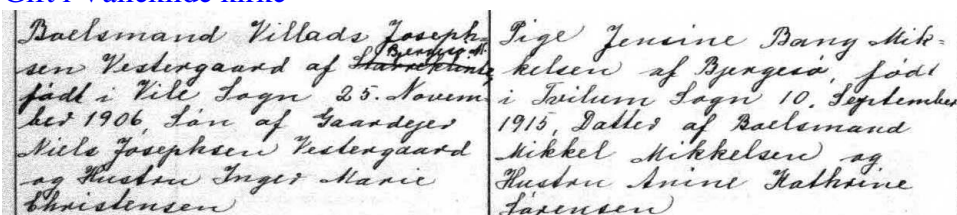 Gift i Vallekilde kirke
Boelsmand Villads Joseph-
Bjergesø M.
sen Vestergaard af Starreklinte,
født i Vile Sogn 25. Novem-
ber 1906, Søn af Gaardejer
Niels Josephsen Vestergaard
og Hustru Inger Marie
Christensen
Pige Jensine Bang Mik-
kelsen af Bjergesø, født
i Tvilum Sogn 10. September
1915, Datter af Boelsmand
Mikkel Mikkelsen og
Hustru Anine Kathrine
Sørensen